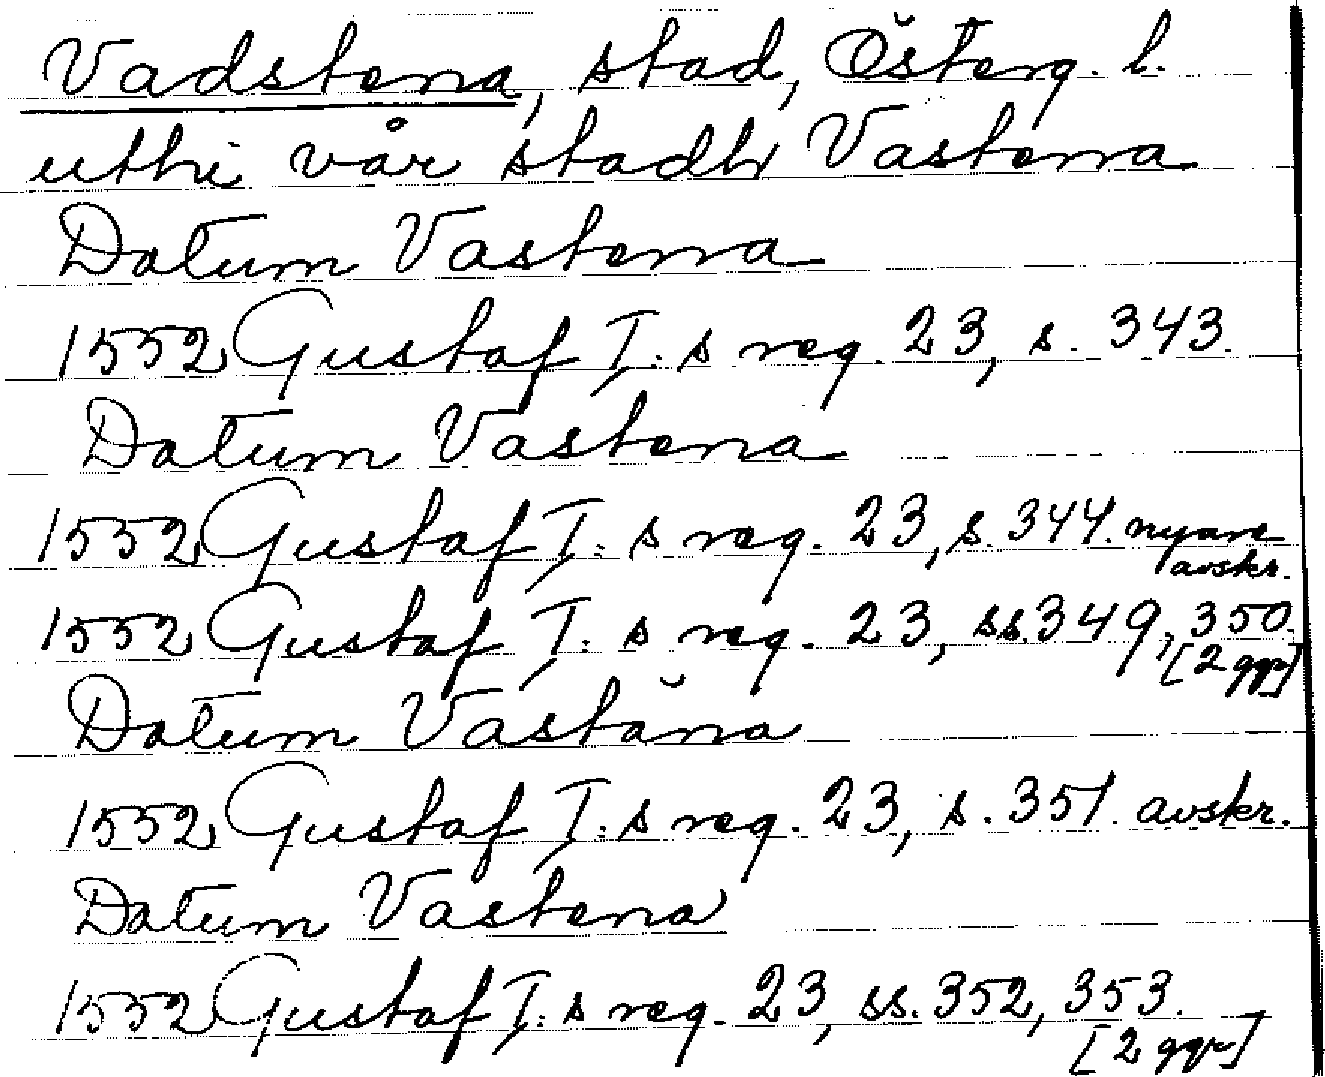 Vadstena, stad, Österg. l.
uthi vår stadh Vastena
Datum Vastena
1552 Gustaf I:s reg. 23, s. 343.
Datum Vastena
1552 Gustaf I:s reg. 23, s. 344. nyare avskr.
1552 Gustaf I:s reg. 23, ss. 349, 350. [2 ggr]
Datum Vastäna
1552 Gustaf I:s reg. 23, s. 351. avskr.
Datum Vastena
1552 Gustaf I:s reg. 23, ss. 352, 353. [2 ggr]